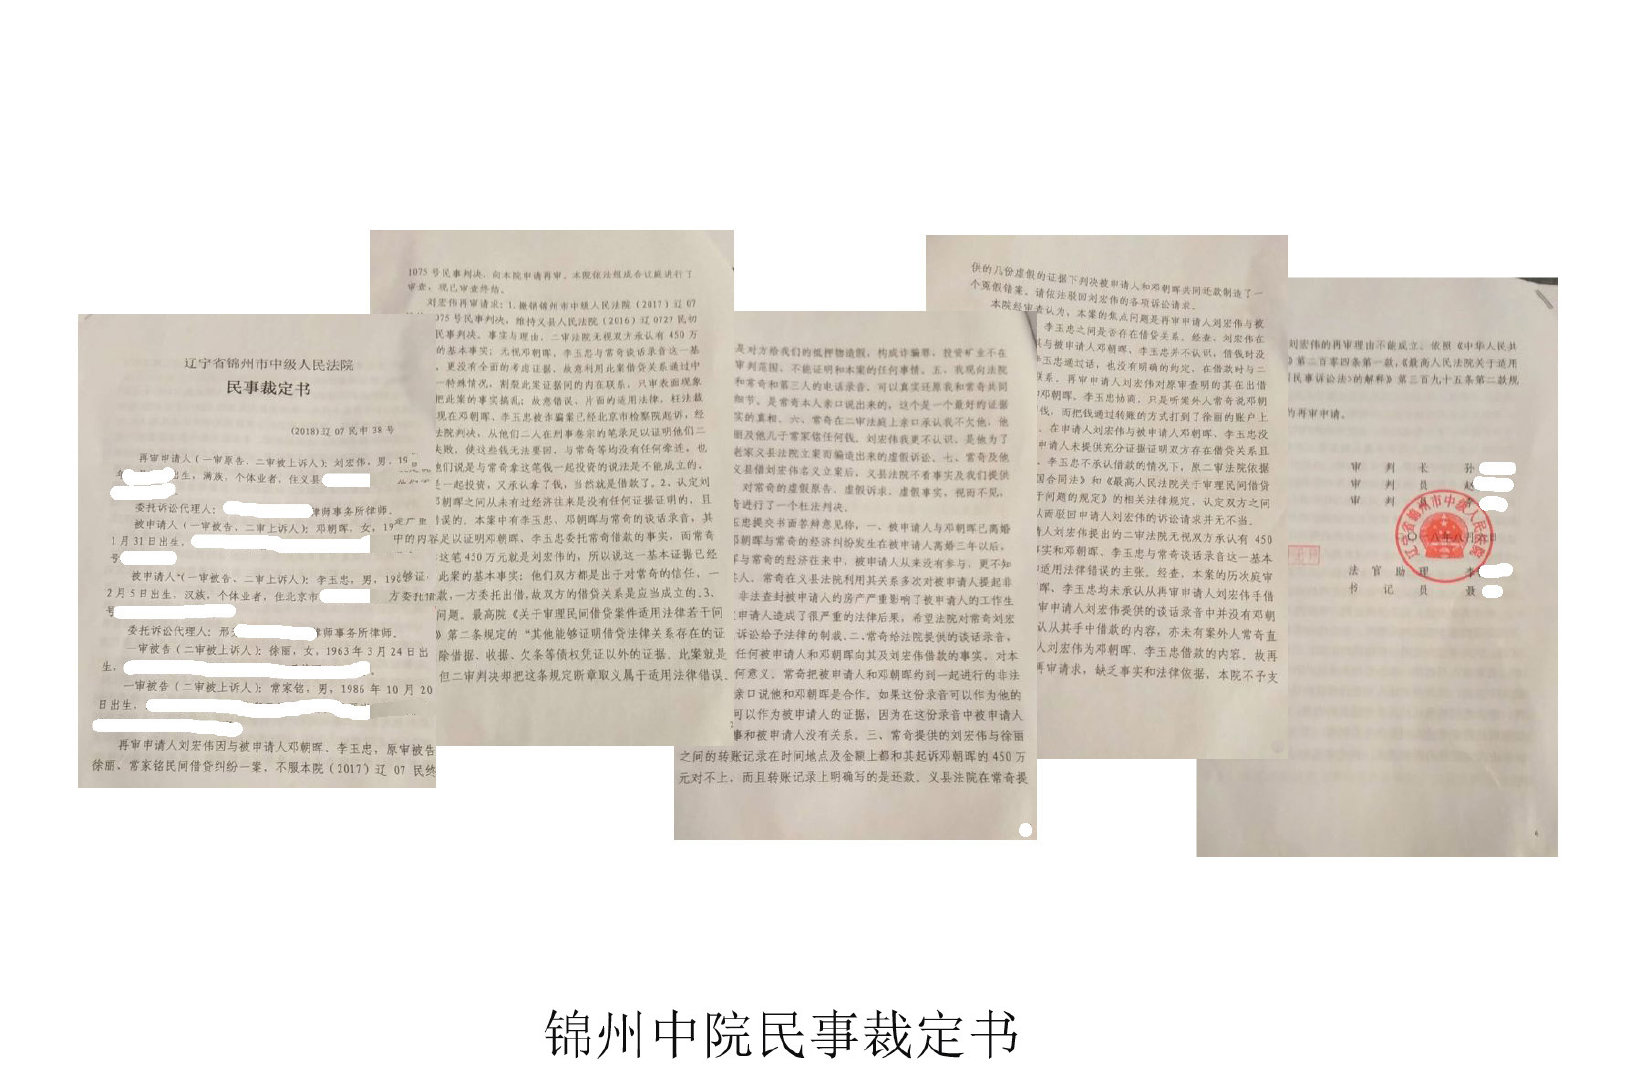 辽宁省锦州市中级人民法院
民事裁定书
(2018)辽 07 民申 38 号
再审申请人(一审原告、二审被上诉人):刘宏伟,男,19
出生,满族,个体业者,住义县
委托诉讼代理人:
律师事务所律师。
被申请人(一审被告、二审上诉人):邓朝晖,女,19
1月31日出生,
号
被申请人(一审被告、二审上诉人):李玉忠,男,196
2月5日出生,汉族,个体业者,住北京市
号
委托诉讼代理人:邢
律师事务所律师。
一审被告(二审被上诉人):徐丽,女,1963年3月24日出
生,
一审被告(二审被上诉人):常家铭,男,1986年10月20
日出生,
再审申请人刘宏伟因与被申请人邓朝晖、李玉忠,原审被告
徐丽、常家铭民间借贷纠纷一案,不服本院(2017)辽 07 民终
1075号民事判决,向本院申请再审。本院依法组成合议庭进行了
审查,现已审查终结。
刘宏伟再审请求:1.撤销锦州市中级人民法院(2017)辽 07
075号民事判决,维持义县人民法院(2016)辽0727民初
民事判决。事实与理由,二审法院无视双方承认有450万
的基本事实;无视邓朝晖、李玉忠与常奇谈话录音这一基
,更没有全面的考虑证据,故意利用此案借贷关系通过中
一特殊情况,割裂此案证据间的内在联系,只审表面现象
把此案的事实搞乱;故意错误、片面的适用法律,枉法裁
现在邓朝晖、李玉忠被诈骗案已经北京市检察院起诉,经
法院判决,从他们二人在刑事卷宗的笔录足以证明他们二
失败,使这些钱无法要回,与常奇等均没有任何牵连,也
他们说是与常奇拿这笔钱一起投资的说法是不能成立的,
一起投资,又承认拿了钱,当然就是借款了。2、认定刘
邓朝晖之间从未有过经济往来是没有任何证据证明的,且
误的。本案中有李玉忠、邓朝晖与常奇的谈话录音,其
中的内容足以证明邓朝晖、李玉忠委托常奇借款的事实,而常奇
这笔450万元就是刘宏伟的,所以说这一基本证据已经
够证 此案的基本事实;他们双方都是出于对常奇的信任,一
方委托借款,一方委托出借,故双方的借贷关系是应当成立的。3、
问题。最高院《关于审理民间借贷案件适用法律若干问
》第二条规定的“其他能够证明借贷法律关系存在的证
除借据、收据、欠条等债权凭证以外的证据。此案就是
但二审判决却把这条规定断章取义属于适用法律错误。
是对方给我们的抵押物造假,构成诈骗罪,投资矿业不在
审判范围,不能证明和本案的任何事情。五、我现向法院
和常奇和第三人的电话录音,可以真实还原我和常奇共同
细节。是常奇本人亲口说出来的,这个是一个最好的证据
实的真相。六、常奇在二审法庭上亲口承认我不欠他,他
丽及他儿子常家铭任何钱。刘宏伟我更不认识,是他为了
老家义县法院立案而编造出来的虚假诉讼。七、常奇及他
义县借刘宏伟名义立案后,义县法院不看事实及我们提供
,对常奇的虚假原告、虚假诉求、虚假事实,视而不见,
奇进行了一个枉法判决。
玉忠提交书面答辩意见称,一、被申请人与邓朝晖已离婚
邓朝晖与常奇的经济纠纷发生在被申请人离婚三年以后,
军与常奇的经济往来中,被申请人从来没有参与,更不知
人。常奇在义县法院利用其关系多次对被申请人提起非
非法查封被申请人的房产严重影响了被申请人的工作生
申请人造成了很严重的法律后果,希望法院对常奇刘宏
诉讼给予法律的制裁。二、常奇给法院提供的谈话录音,
任何被申请人和邓朝晖向其及刘宏伟借款的事实,对本
何意义。常奇把被申请人和邓朝晖约到一起进行的非法
亲口说他和邓朝晖是合作。如果这份录音可以作为他的
可以作为被申请人的证据,因为在这份录音中被申请人
事和被申请人没有关系。三、常奇提供的刘宏伟与徐丽
之间的转账记录在时间地点及金额上都和其起诉邓朝晖的450万
元对不上,而且转账记录上明确写的是还款。义县法院在常奇提
供的几份虚假的证据下判决被申请人和邓朝晖共同还款制造了一
个冤假错案。请依法驳回刘宏伟的各项诉讼请求。
本院经审查认为,本案的焦点问题是再审申请人刘宏伟与被
、李玉忠之间是否存在借贷关系。经查,刘宏伟在
其与被申请人邓朝晖、李玉忠并不认识,借钱时没
李玉忠通过话,也没有明确的约定,在借款时与二
联系。再审申请人刘宏伟对原审查明的其在出借
邓朝晖、李玉忠协商,只是听案外人常奇说邓朝
钱,而把钱通过转账的方式打到了徐丽的账户上
。在申请人刘宏伟与被申请人邓朝晖、李玉忠没
申请人未提供充分证据证明双方存在借贷关系且
、李玉忠不承认借款的情况下,原二审法院依据
国合同法》和《最高人民法院关于审理民间借贷
干问题的规定》的相关法律规定,认定双方之间
从而驳回申请人刘宏伟的诉讼请求并无不当。
请人刘宏伟提出的二审法院无视双方承认有 450
事实和邓朝晖、李玉忠与常奇谈话录音这一基本
中适用法律错误的主张。经查,本案的历次庭审
晖、李玉忠均未承认从再审申请人刘宏伟手借
审申请人刘宏伟提供的谈话录音中并没有邓朝
认从其手中借款的内容,亦未有案外人常奇直
人刘宏伟为邓朝晖、李玉忠借款的内容。故再
再审请求,缺乏事实和法律依据,本院不予支
刘宏伟的再审理由不能成立。依照《中华人民共
》第二百零四条第一款,《最高人民法院关于适用
民事诉讼法>的解释》第三百九十五条第二款规
的再审申请。
审判长 孙
审判员 赵
审判
辽宁省锦州市中级人民法院
八年八月 日
法官助理 李
书记员 聂
锦州中院民事裁定书